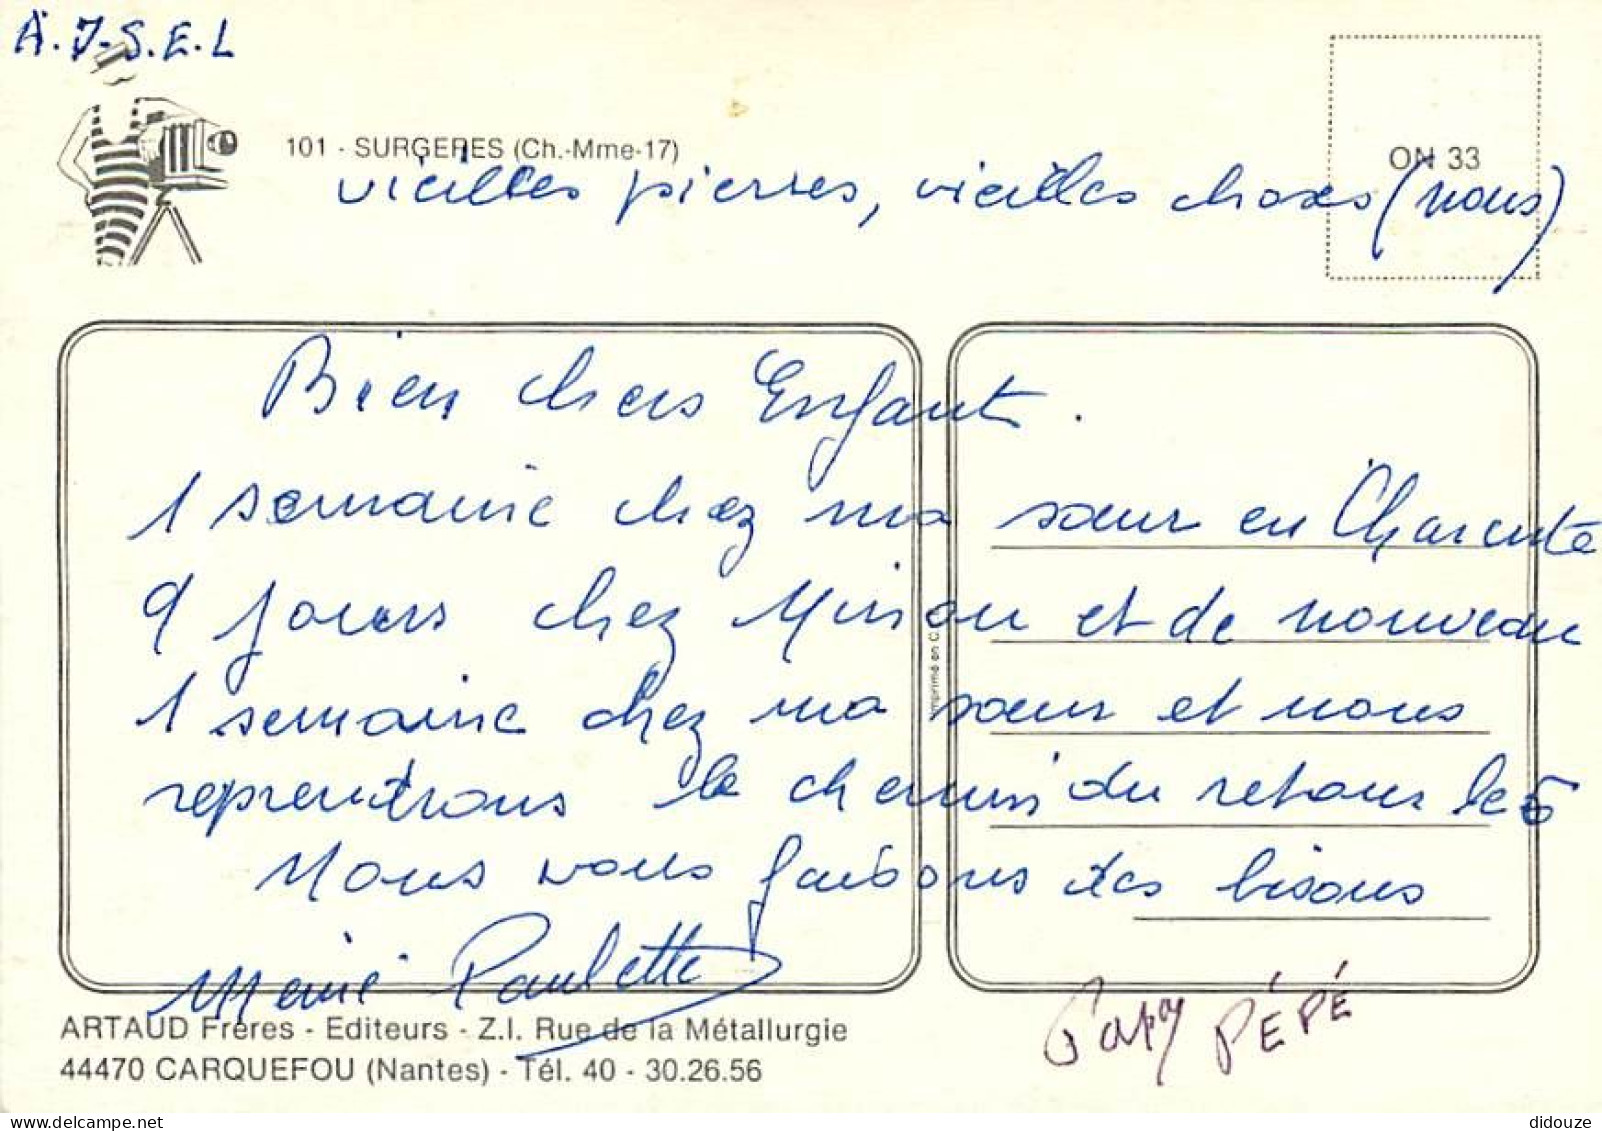 A.J-S.E.L
101 - SURGERES (Ch.-Mme-17)
ON 33
vieilles pierres, vieilles choses (nous)
Bien chers Enfants.
1 semaine chez ma sœur en Charente
9 jours chez et de nouveau
1 semaine chez ma sœur et nous
reprendrons le chemin du retour le 5
Nous vous faisons des bisous
Mémé Paulette
Papy PÉPÉ
Imprimé en C
ARTAUD Frères - Editeurs - Z.I. Rue de la Métallurgie
44470 CARQUEFOU (Nantes) - Tél. 40 - 30.26.56
didouze